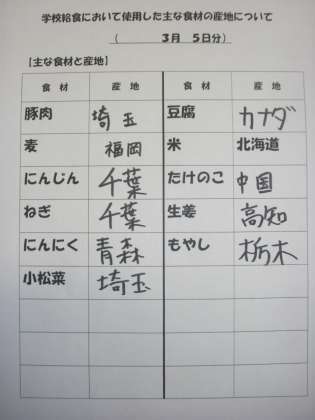 学校給食において使用した主な食材の産地について
（ 3月 5日分）
【主な食材と産地】
食 材 産 地 食 材 産 地
豚肉 埼玉 豆腐 カナダ
麦 福岡 米 北海道
にんじん 千葉 たけのこ 中国
ねぎ 千葉 生姜 高知
にんにく 青森 もやし 栃木
小松菜 埼玉